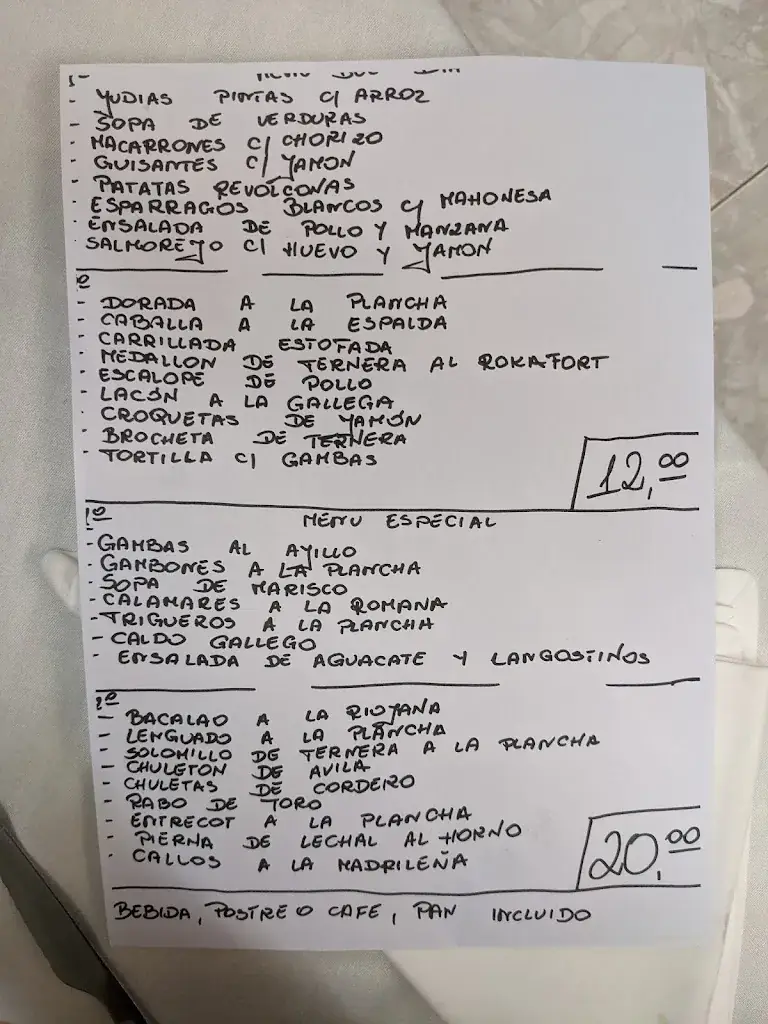 MENU DEL DIA
- YUDIAS PINTAS C/ ARROZ
- SOPA DE VERDURAS
- MACARRONES C/ CHORIZO
- GUISANTES C/ YAMON
- PATATAS REVOLCONAS
- ESPARRAGOS BLANCOS C/ MAHONESA
- ENSALADA DE POLLO Y MANZANA
- SALMOREJO C/ HUEVO Y JAMON
- DORADA A LA PLANCHA
- CABALLA A LA ESPALDA
- CARRILLADA ESTOFADA
- MEDALLON DE TERNERA AL ROKAFORT
- ESCALOPE DE POLLO
- LACÓN A LA GALLEGA
- CROQUETAS DE YAMÓN
- BROCHETA DE TERNERA
- TORTILLA C/ GAMBAS
12,00
1º MENU ESPECIAL
- GAMBAS AL AYILLO
- GAMBONES A LA PLANCHA
- SOPA DE MARISCO
- CALAMARES A LA ROMANA
- TRIGUEROS A LA PLANCHA
- CALDO GALLEGO
- ENSALADA DE AGUACATE Y LANGOSTINOS
2º
- BACALAO A LA RIOJANA
- LENGUADO A LA PLANCHA
- SOLOMILLO DE TERNERA A LA PLANCHA
- CHULETON DE AVILA
- CHULETAS DE CORDERO
- RABO DE TORO
- ENTRECOT A LA PLANCHA
- PIERNA DE LECHAL AL HORNO
- CALLOS A LA MADRILEÑA
20,00
BEBIDA, POSTRE O CAFE, PAN INCLUIDO